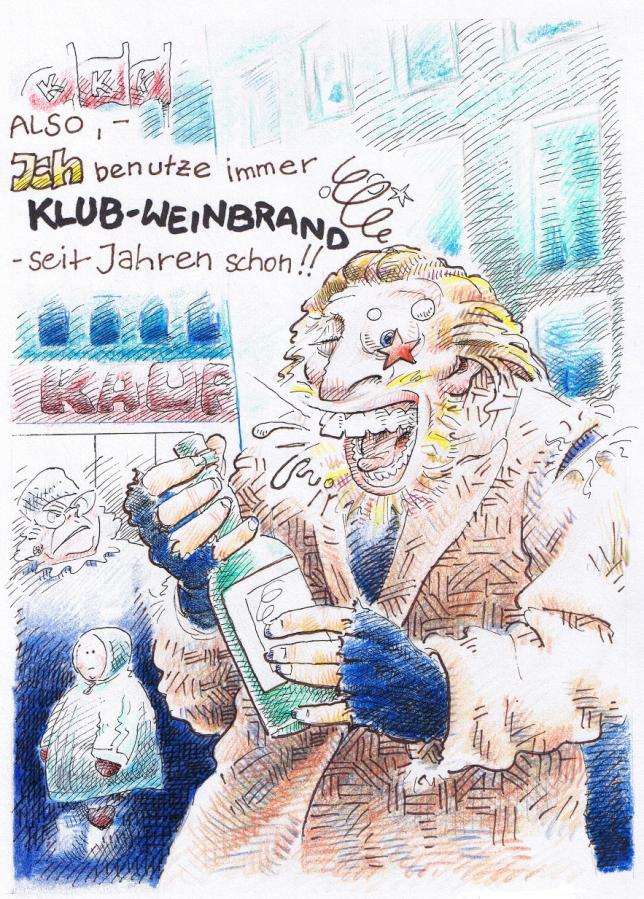 ALSO,-
Ich benutze immer
KLUB-WEINBRAND
-seit Jahren schon!!
KAUF